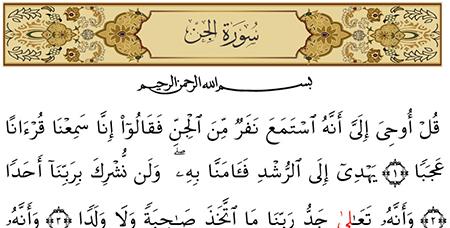 سُورَةُ الجِنّ
بسم الله الرحمن الرحيم
قُلْ أُوحِىَ إِلَىَّ أَنَّهُ ٱسْتَمَعَ نَفَرٌ مِّنَ ٱلْجِنِّ فَقَالُوٓا۟ إِنَّا سَمِعْنَا قُرْءَانًا
عَجَبًا ﴿١﴾ يَهْدِىٓ إِلَى ٱلرُّشْدِ فَـَٔامَنَّا بِهِۦ ۖ وَلَن نُّشْرِكَ بِرَبِّنَآ أَحَدًا
﴿٢﴾ وَأَنَّهُۥ تَعَٰلَىٰ جَدُّ رَبِّنَا مَا ٱتَّخَذَ صَٰحِبَةً وَلَا وَلَدًا ﴿٣﴾ وَأَنَّهُۥ